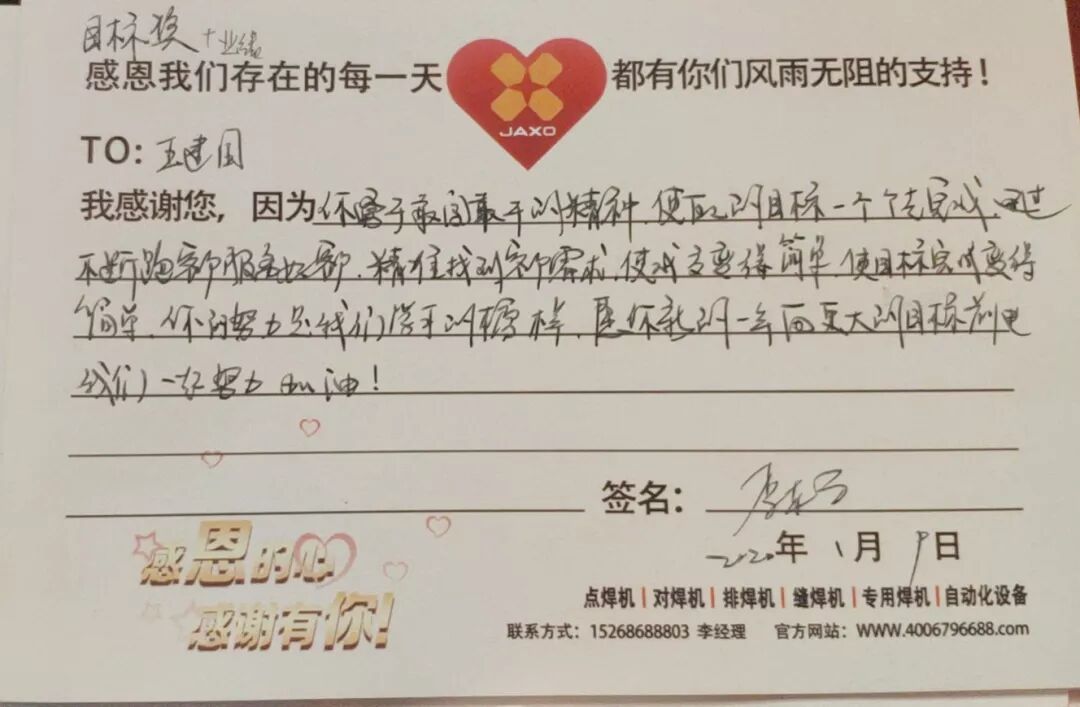 目标奖+业绩
感恩我们存在的每一天 JAXO 都有你们风雨无阻的支持！
TO：王建国
我感谢您，因为你骨子敢闯敢干的精神，使既的目标一个个去完成，通过
不断跑客户服务好客户，精准找到客户需求，使成交变得简单，使目标完成变得
简单，你的努力是我们学习的榜样，愿你新的一年向更大的目标前进
我们一起努力加油！
签名：
2020年1月9日
感恩的心
感谢有你！
点焊机|对焊机|排焊机|缝焊机|专用焊机|自动化设备
联系方式：15268688803 李经理 官方网站：WWW.4006796688.com